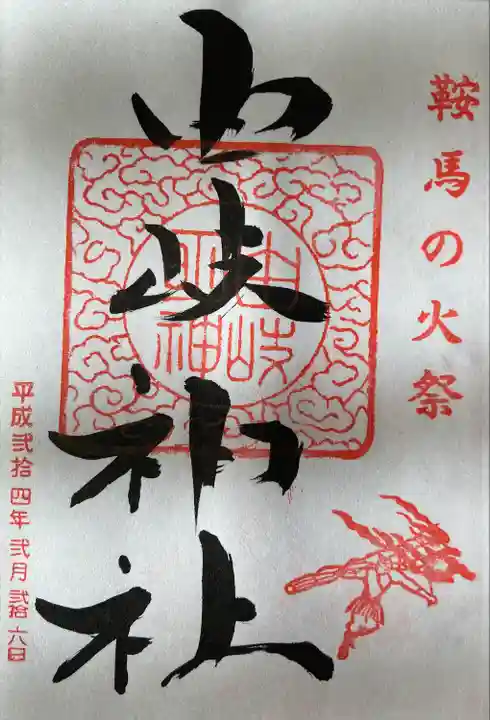 鞍馬の火祭
由岐神社
由岐
神社
平成弐拾四年弐月弐拾六日